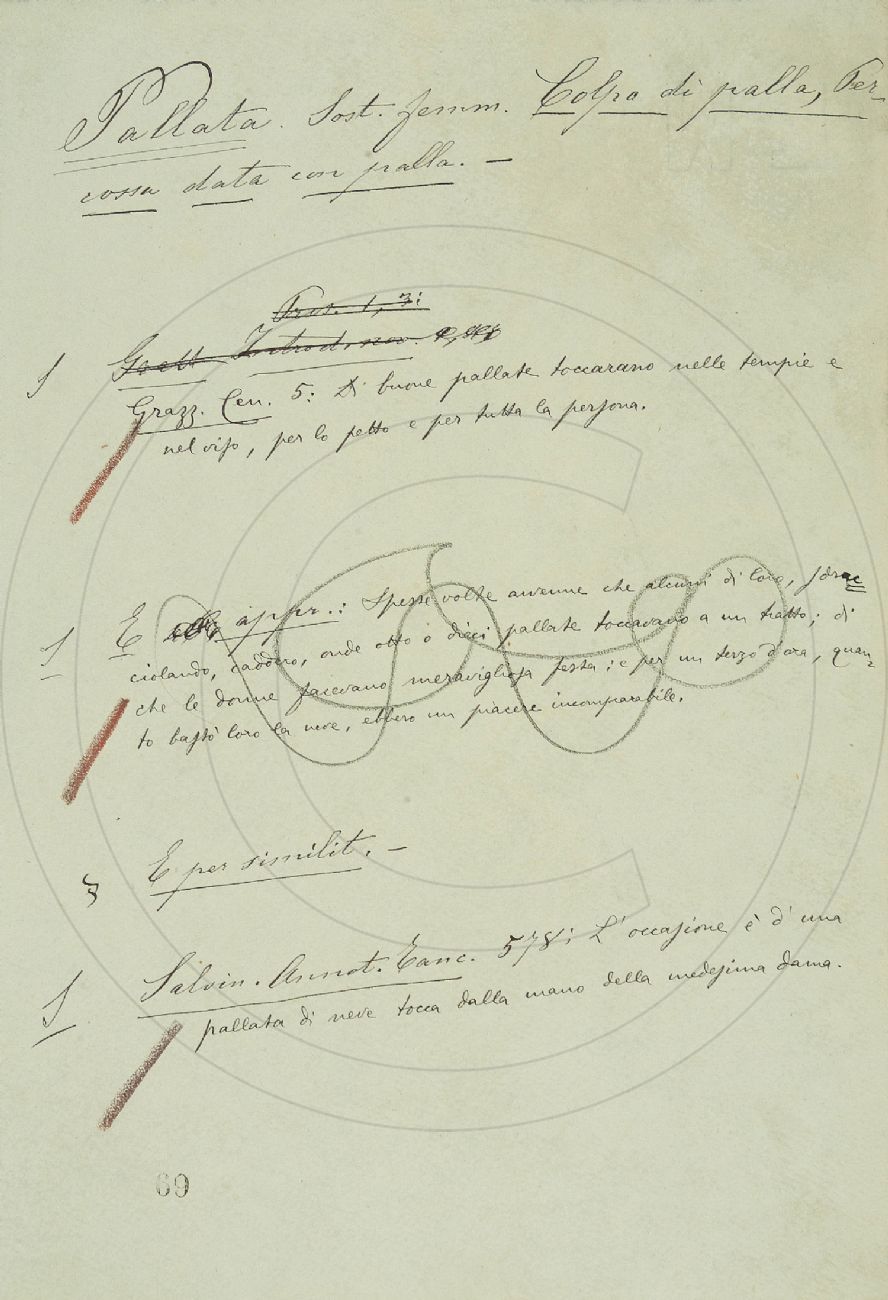 Pallata. Sost. femm. Colpo di palla, Per-
cossa data con palla. —
Pros. 1, 3:
Introd. nov.
S Grazz. Cen. 5: Di buone pallate toccarano nelle tempie e
nel viso, per lo petto e per tutta la persona.
S E appr.: Spesse volte avvenne che alcuni di loro, sdruc=
ciolando, caddero, onde otto o dieci pallate toccavano a un tratto; di
che le donne facevano meravigliosa festa: e per un terzo d'ora, quan=
to bastò loro la neve, ebbero un piacere incomparabile.
E per similit. —
S Salvin. Annot. Tanc. 578: L'occasione è d'una
pallata di neve tocca dalla mano della medesima dama.
69